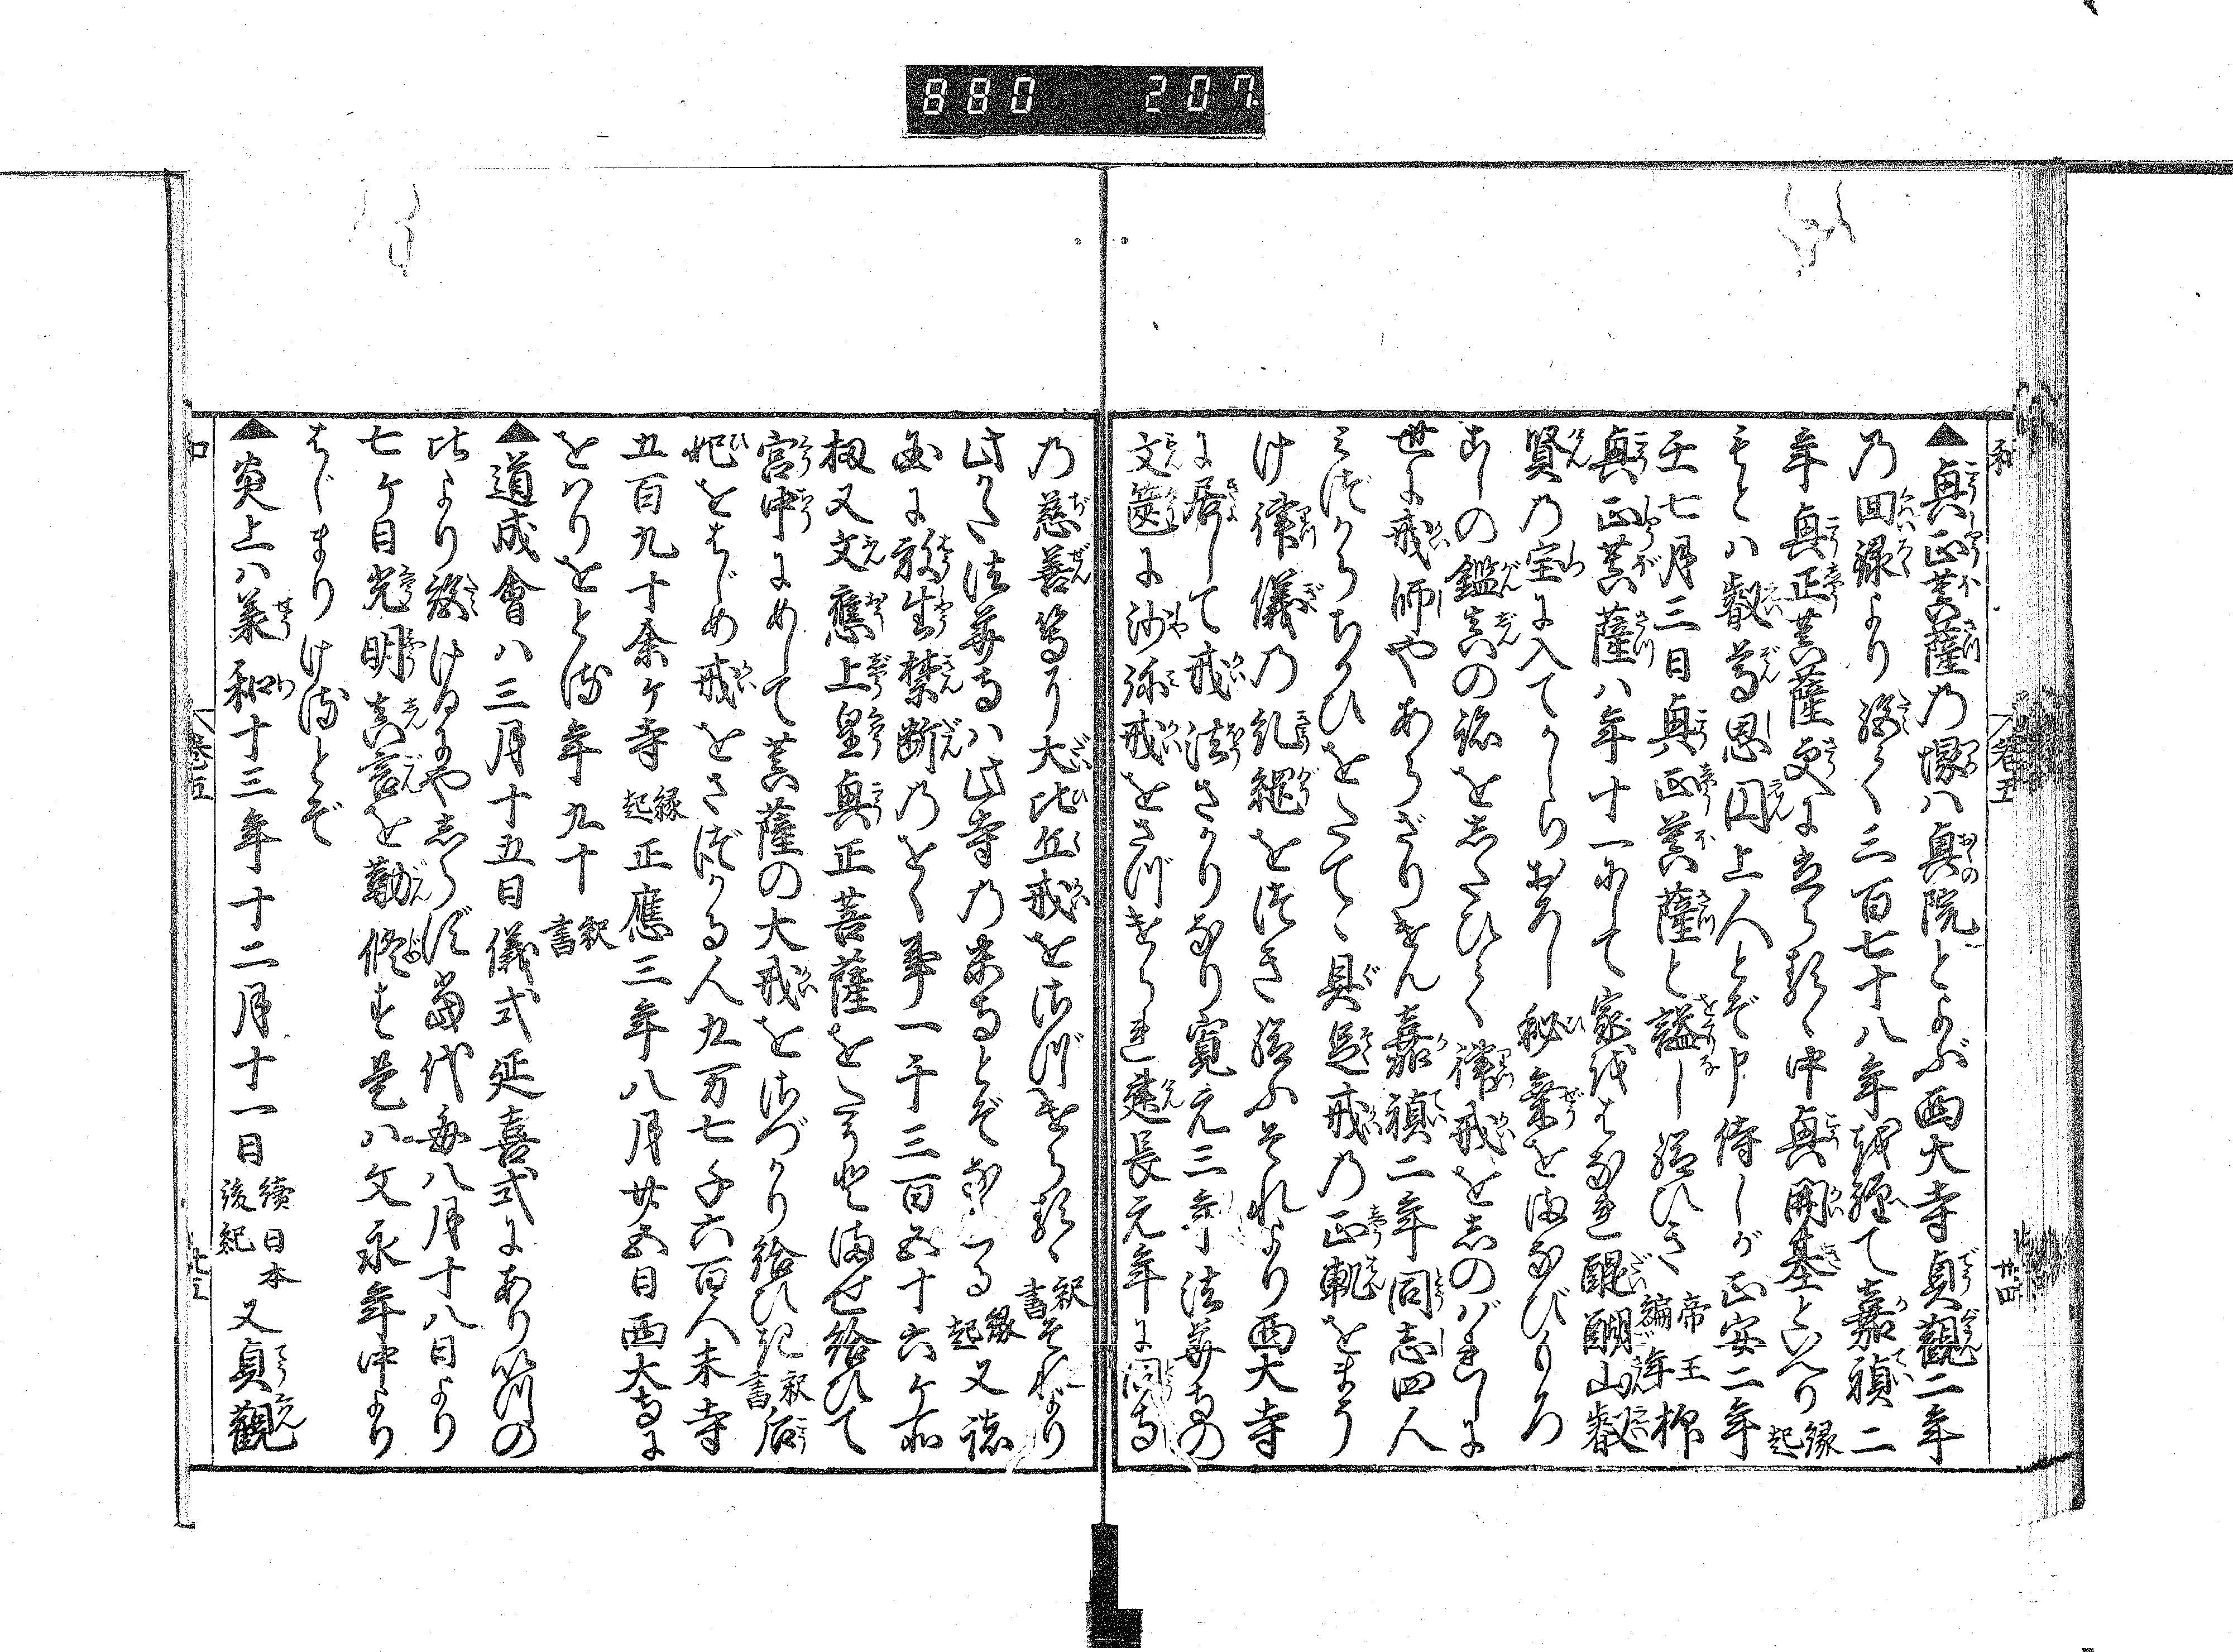 880 207
和 卷五 廿四
▲興正菩薩乃塚ハ奥院とよぶ西大寺貞觀二年
乃回禄より後く三百七十八年を經て嘉禎二
年興正菩薩更よ立らる中興開基といへり縁起
もとハ叡尊思円上人とぞ申侍しが正安二年
壬七月三日興正菩薩と謚し給ひき帝王編年
興正菩薩ハ年十一にて家をはなれ醍醐山叡
賢の室に入てかしらおろし秘乗をまなびしりろ
しの鑑真の跡をしたひて律戒をしのばれしに
世よ戒師やあらざりけん嘉禎二年同志四人
みづからちかひをたてゝ具足戒乃正軌をまう
け律儀乃紀綱をつぎ給ふそれより西大寺
よ居して戒法さかりなり寛元三年法華寺の
文篋よ沙弥戒をさづけられ建長元年よ同寺
乃慈善等に大比丘戒をさづけらる釈書それより
此かた法華寺ハ此寺乃末寺とぞなりける縁起又諸
国よ放生禁断乃をく事一千三百五十六ケ所
扨又文應上皇興正菩薩をたうとませ給ひて
宮中よめして菩薩の大戒をさづかり給ひ記釈書后
妃をはじめ戒をさづかる人九万七千六百人末寺
五百九十余ケ寺縁起正應三年八月廿五日西大寺よ
をはりをとる年九十釈書
▲道成會ハ三月十五日儀式延喜式よありいつの
比より絶けるにや志らず當代毎八月十八日より
七ケ日光明真言を勤修す是ハ文永年中より
はじまりけるとぞ
▲炎上ハ承和十三年十二月十一日續日本後紀又貞觀
卷五